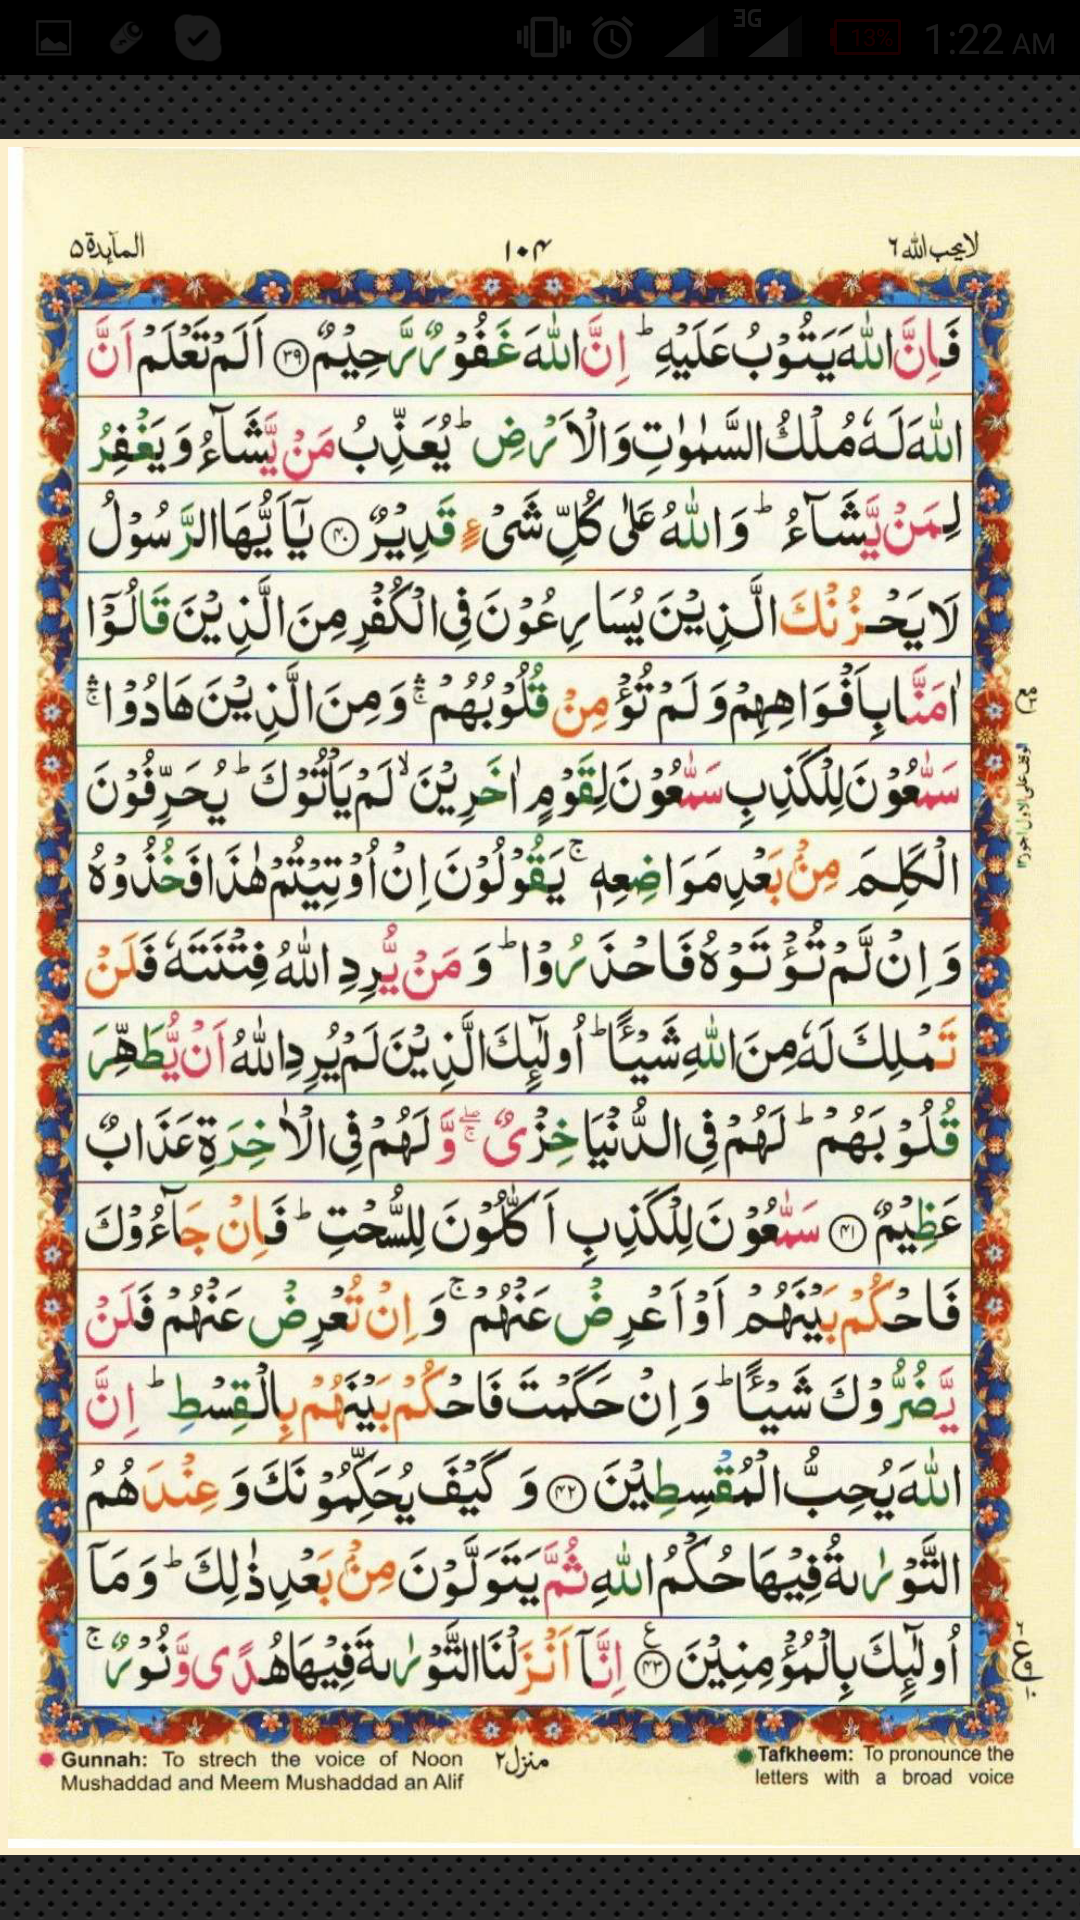 3G
13%
1:22 AM
لا يحب الله ٦
١٠٤
المآىِٕدة ٥
فَاِنَّ اللّٰهَ يَتُوْبُ عَلَيْهِ ؕ اِنَّ اللّٰهَ غَفُوْرٌ رَّحِيْمٌ ﴿۳۹﴾ اَلَمْ تَعْلَمْ اَنَّ
اللّٰهَ لَهٗ مُلْكُ السَّمٰوٰتِ وَ الْاَرْضِ ؕ يُعَذِّبُ مَنْ يَّشَآءُ وَ يَغْفِرُ
لِمَنْ يَّشَآءُ ؕ وَ اللّٰهُ عَلٰى كُلِّ شَىْءٍ قَدِيْرٌ ﴿۴۰﴾ يٰۤاَيُّهَا الرَّسُوْلُ
لَا يَحْزُنْكَ الَّذِيْنَ يُسَارِعُوْنَ فِى الْكُفْرِ مِنَ الَّذِيْنَ قَالُوْۤا
اٰمَنَّا بِاَفْوَاهِهِمْ وَ لَمْ تُؤْمِنْ قُلُوْبُهُمْ ۛۚ وَ مِنَ الَّذِيْنَ هَادُوْا ۛۚ
سَمّٰعُوْنَ لِلْكَذِبِ سَمّٰعُوْنَ لِقَوْمٍ اٰخَرِيْنَ ۙ لَمْ يَاْتُوْكَ ؕ يُحَرِّفُوْنَ
الْكَلِمَ مِنْۢ بَعْدِ مَوَاضِعِهٖ ۚ يَقُوْلُوْنَ اِنْ اُوْتِيْتُمْ هٰذَا فَخُذُوْهُ
وَ اِنْ لَّمْ تُؤْتَوْهُ فَاحْذَرُوْا ؕ وَ مَنْ يُّرِدِ اللّٰهُ فِتْنَتَهٗ فَلَنْ
تَمْلِكَ لَهٗ مِنَ اللّٰهِ شَيْـًٔا ؕ اُولٰٓىِٕكَ الَّذِيْنَ لَمْ يُرِدِ اللّٰهُ اَنْ يُّطَهِّرَ
قُلُوْبَهُمْ ؕ لَهُمْ فِى الدُّنْيَا خِزْىٌ ۖۚ وَّ لَهُمْ فِى الْاٰخِرَةِ عَذَابٌ
عَظِيْمٌ ﴿۴۱﴾ سَمّٰعُوْنَ لِلْكَذِبِ اَكّٰلُوْنَ لِلسُّحْتِ ؕ فَاِنْ جَآءُوْكَ
فَاحْكُمْ بَيْنَهُمْ اَوْ اَعْرِضْ عَنْهُمْ ۚ وَ اِنْ تُعْرِضْ عَنْهُمْ فَلَنْ
يَّضُرُّوْكَ شَيْـًٔا ؕ وَ اِنْ حَكَمْتَ فَاحْكُمْ بَيْنَهُمْ بِالْقِسْطِ ؕ اِنَّ
اللّٰهَ يُحِبُّ الْمُقْسِطِيْنَ ﴿۴۲﴾ وَ كَيْفَ يُحَكِّمُوْنَكَ وَ عِنْدَهُمُ
التَّوْرٰىةُ فِيْهَا حُكْمُ اللّٰهِ ثُمَّ يَتَوَلَّوْنَ مِنْۢ بَعْدِ ذٰلِكَ ؕ وَ مَاۤ
اُولٰٓىِٕكَ بِالْمُؤْمِنِيْنَ ﴿۴۳﴾ ع اِنَّاۤ اَنْزَلْنَا التَّوْرٰىةَ فِيْهَا هُدًى وَّ نُوْرٌ ۚ
Gunnah: To strech the voice of Noon
Mushaddad and Meem Mushaddad an Alif
منزل ٢
Tafkheem: To pronounce the
letters with a broad voice